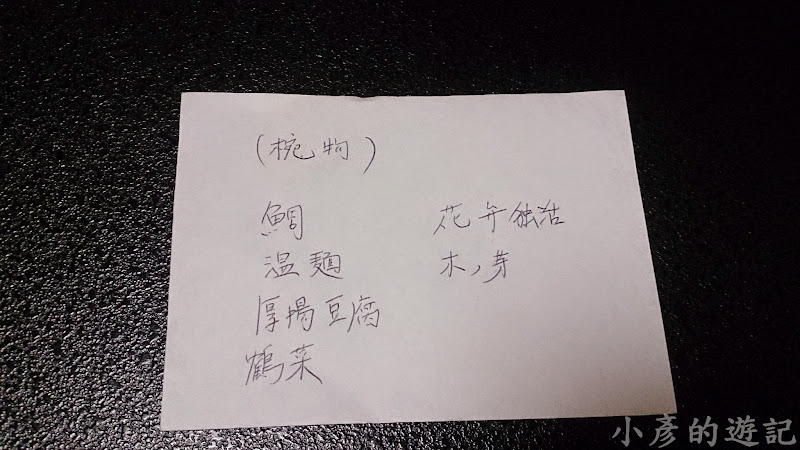 (椀物)
鯛
温麺
厚揚豆腐
鶴菜
花弁独活
木ノ芽
小彥的遊記